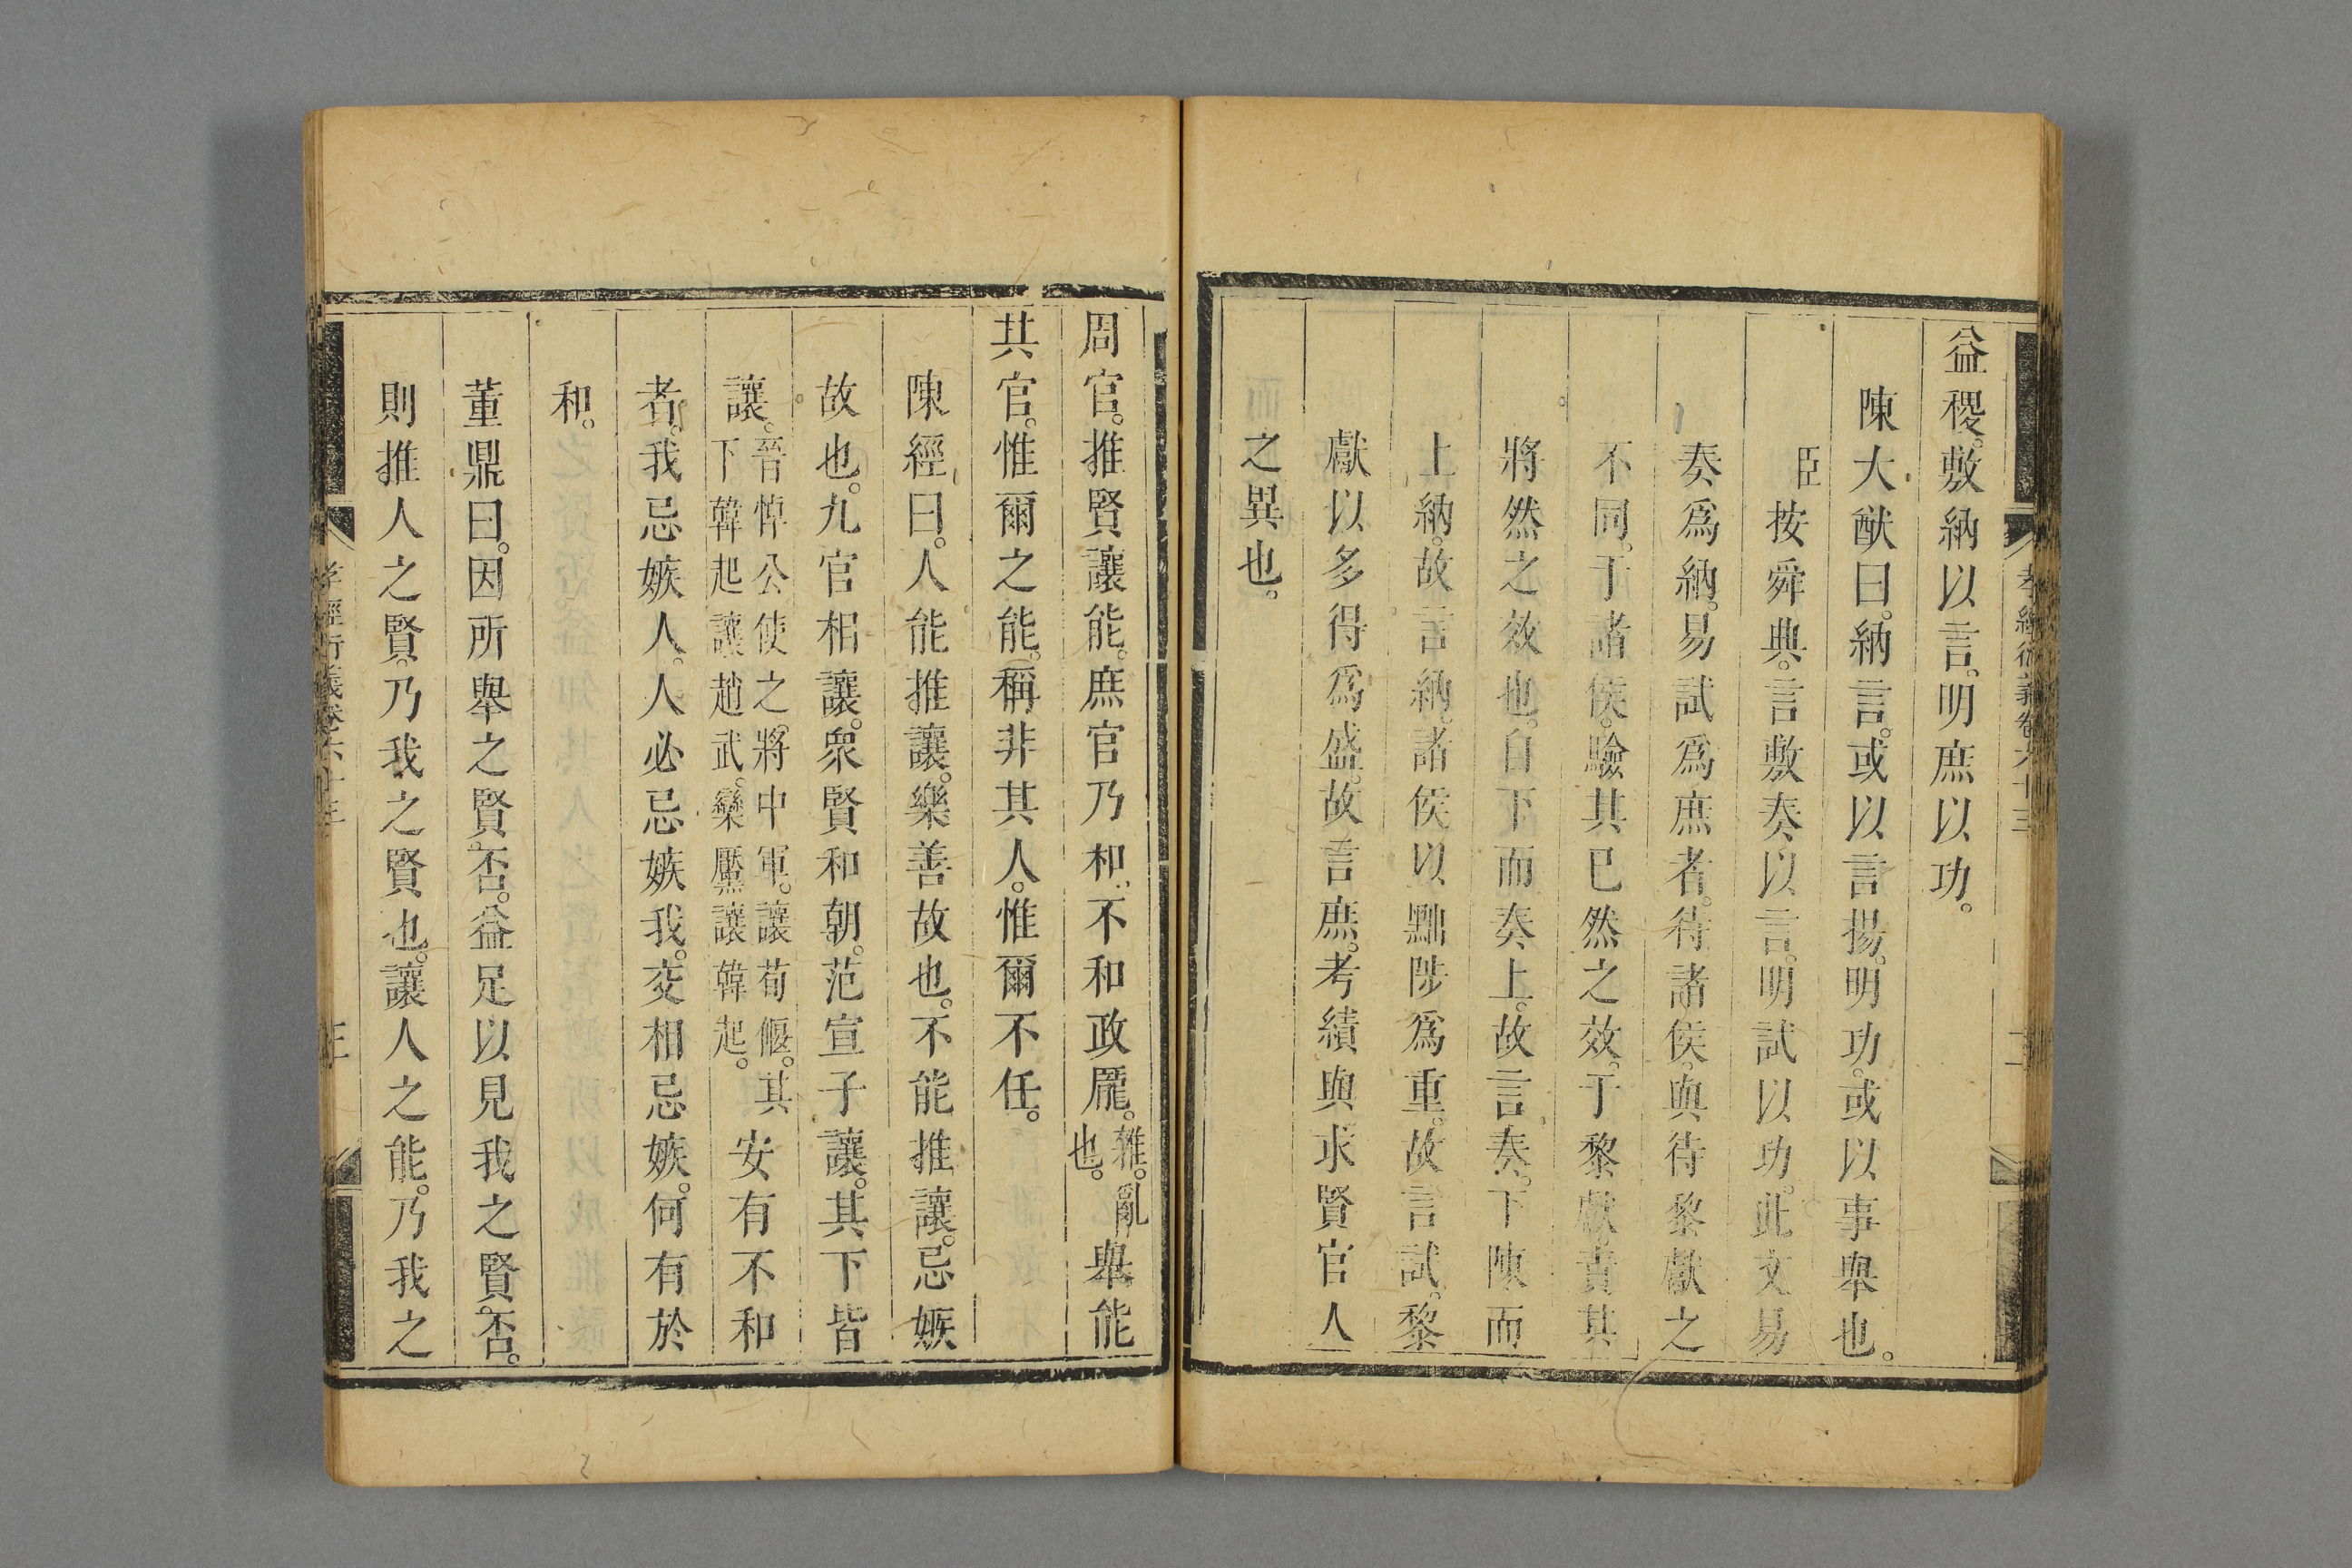 孝經衍義卷六十三
二
益稷。敷納以言。明庶以功。
陳大猷曰。納言。或以言揚。明功。或以事舉也。
臣按舜典。言敷奏以言。明試以功。此文易
奏爲納。易試爲庶者。待諸侯。與待黎獻之
不同。于諸侯。驗其已然之效。于黎獻。責其
將然之效也。自下而奏上。故言奏。下陳而
上納。故言納。諸侯以黜陟爲重。故言試。黎
獻以多得爲盛。故言庶。考績與求賢官人
之異也。
周官。推賢讓能。庶官乃和。不和政厖。雜亂。也。舉能
其官。惟爾之能。稱非其人。惟爾不任。
陳經曰。人能推讓。樂善故也。不能推讓。忌嫉
故也。九官相讓。衆賢和朝。范宣子讓。其下皆
讓。晉悼公使之。將中軍。讓荀偃。其下韓起讓趙武。欒黶讓韓起。安有不和
者。我忌嫉人。人必忌嫉我。交相忌嫉。何有於
和。
董鼎曰。因所舉之賢否。益足以見我之賢否。
則推人之賢。乃我之賢也。讓人之能。乃我之
孝經衍義卷六十三
三